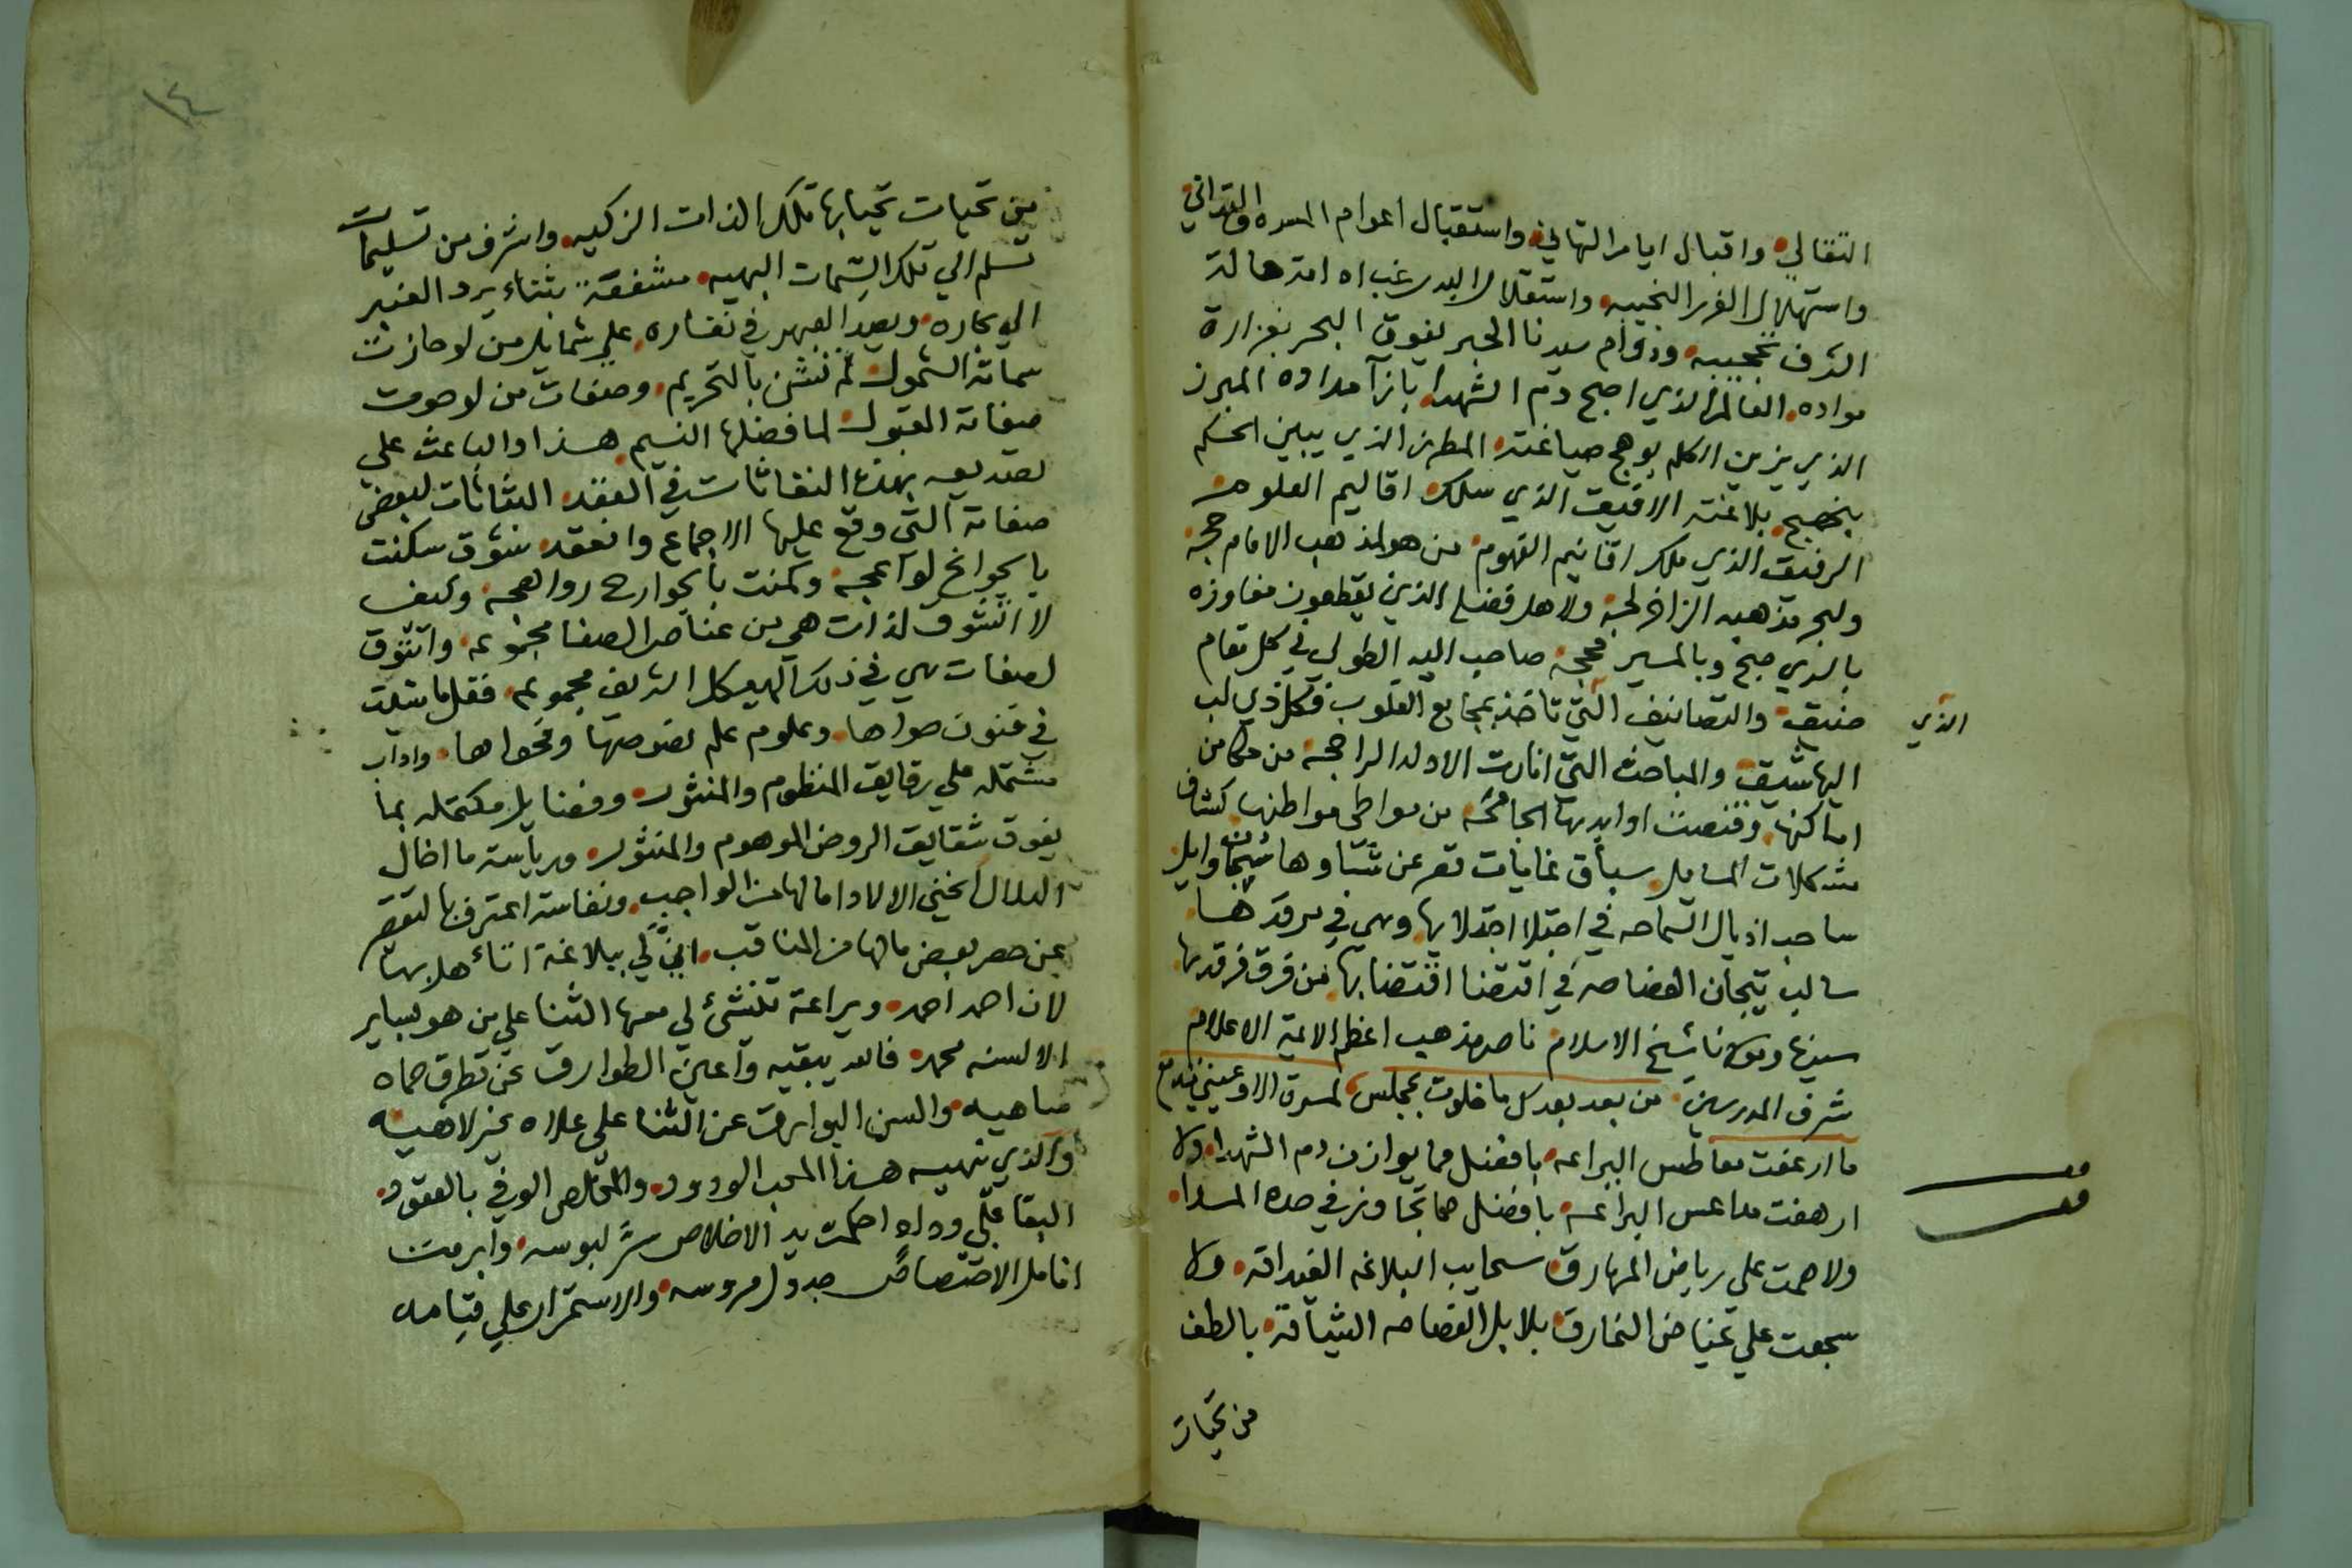 التقالي واقبال ايام التهاني واستقبال اعوام المسره والتداني
واستهلال الغرر النجيبه واستقلال البدر هالة
الشرف ودوام سيدنا الحبر يفوق البحر بغزارة
مواده العالم الذي اصبح دم الشهدا بازآ مداده المبرز
الذي يزين الكلم بوهج صياغته المطرز الذي يبين الحكم
بنهج بلاغته الافيق الذي سلك اقاليم العلوم
الرفيق الذي ملك اقانيم الفهوم من هو لمذهب الامام حجة
ولبحر مذهبه الزاخر لجة ولاهل فضله الذين يقطعون مفاوزه
بالسري صبح وبالمسير محجة صاحب اليد الطولي في كل مقام
ضيق والتصانيف التي تاخذ بمجامع القلوب فكل ذي لب
الذي
اليها شيق والمباحث التي اثارت الاولد الراجحة من مكامن
اماكنها وقنصت اوابدها الجامحة من مواطي مواطنها كشاف
مشكلات المسايل سباق غايات تقصر عن شاوها وايل
ساحب اذيال السماحه في اجتلا اجتلايها وهي في مرقدها
سالب تيجان الفصاحه في اقتضا اقتضابها من فرق فرقدها
سيدنا ومولانا شيخ الاسلام ناصر مذهب اعظم الايمة الاعلام
شرف المدرسين من بعد بعدك ما خلوت بمجلس لمسرة الا وعيني تدمع
ما ارعفت معاطس اليراعه بافضل مما يوازن دم الشهدا ولا
ارهفت مداعس البراعه بافضل مما تجاوز في حده المدا
ولا همت على رياض المهارق سحايب البلاغه الغيداقه ولا
سجعت علي غياض النمارق بلابل الفصاحه باللطف
من تحيات
١٤
من تحيات تحيا بها تلك الذات الزكيه واشرف من تسليمات
تسلم الي تلك السمات البهيه مشفعة بثناء يرد العنبر
الي بحاره ويعيد العبهر في نضاره علي شمايل من لو حازت
سماته الشمول لم تنشن بالتحريم وصفات من لو حوت
صفاته القبول لما فضلها النسيم هذا والباعث علي
تصديعه بهذه النفاثات في العقد النثاثات لبعض
صفاته التي وقع عليها الاجماع وانعقد شوق سكنت
بالجوانح لواعجه وكمنت بالجوارح رواهجه وكيف
لا اتشوق لذات هي من عناصر الصفا مجموعه واتشوق
لصفات هي في ذلك الهيكل الشريف مجموعه فقل ما شيت
في فنون حواها وعلوم علم نصوصها وفحواها واداب
مشتمله علي رقايق المنظوم والمنثور وفضايل مكتمله بما
يفوق شقايق الروض الموهوم والمنثور ورياسة ما اخال
الدلال الا اداما لها من الواجب ونفاسة اعترف بالتقصير
عن حصر بعض مالها من المناقب انّي لي ببلاغة اتاهل بها
لان احمد احمد وبراعة تنشئ لي معها الثنا علي من هو بساير
الالسنه محمد فالله يبقيه واعين الطوارق عن تطرق حماه
ساهيه والسن البوارق عن الثنا علي علاه غير لاهيه
والذي ينهيه هذا المحب الودود والمخلص الوفي بالعقود
البقا علي وداد احكمت يد الاخلاص لبوسه وابرمت
انامل الاختصاص جدول مروسه والاستمرار علي قيامه